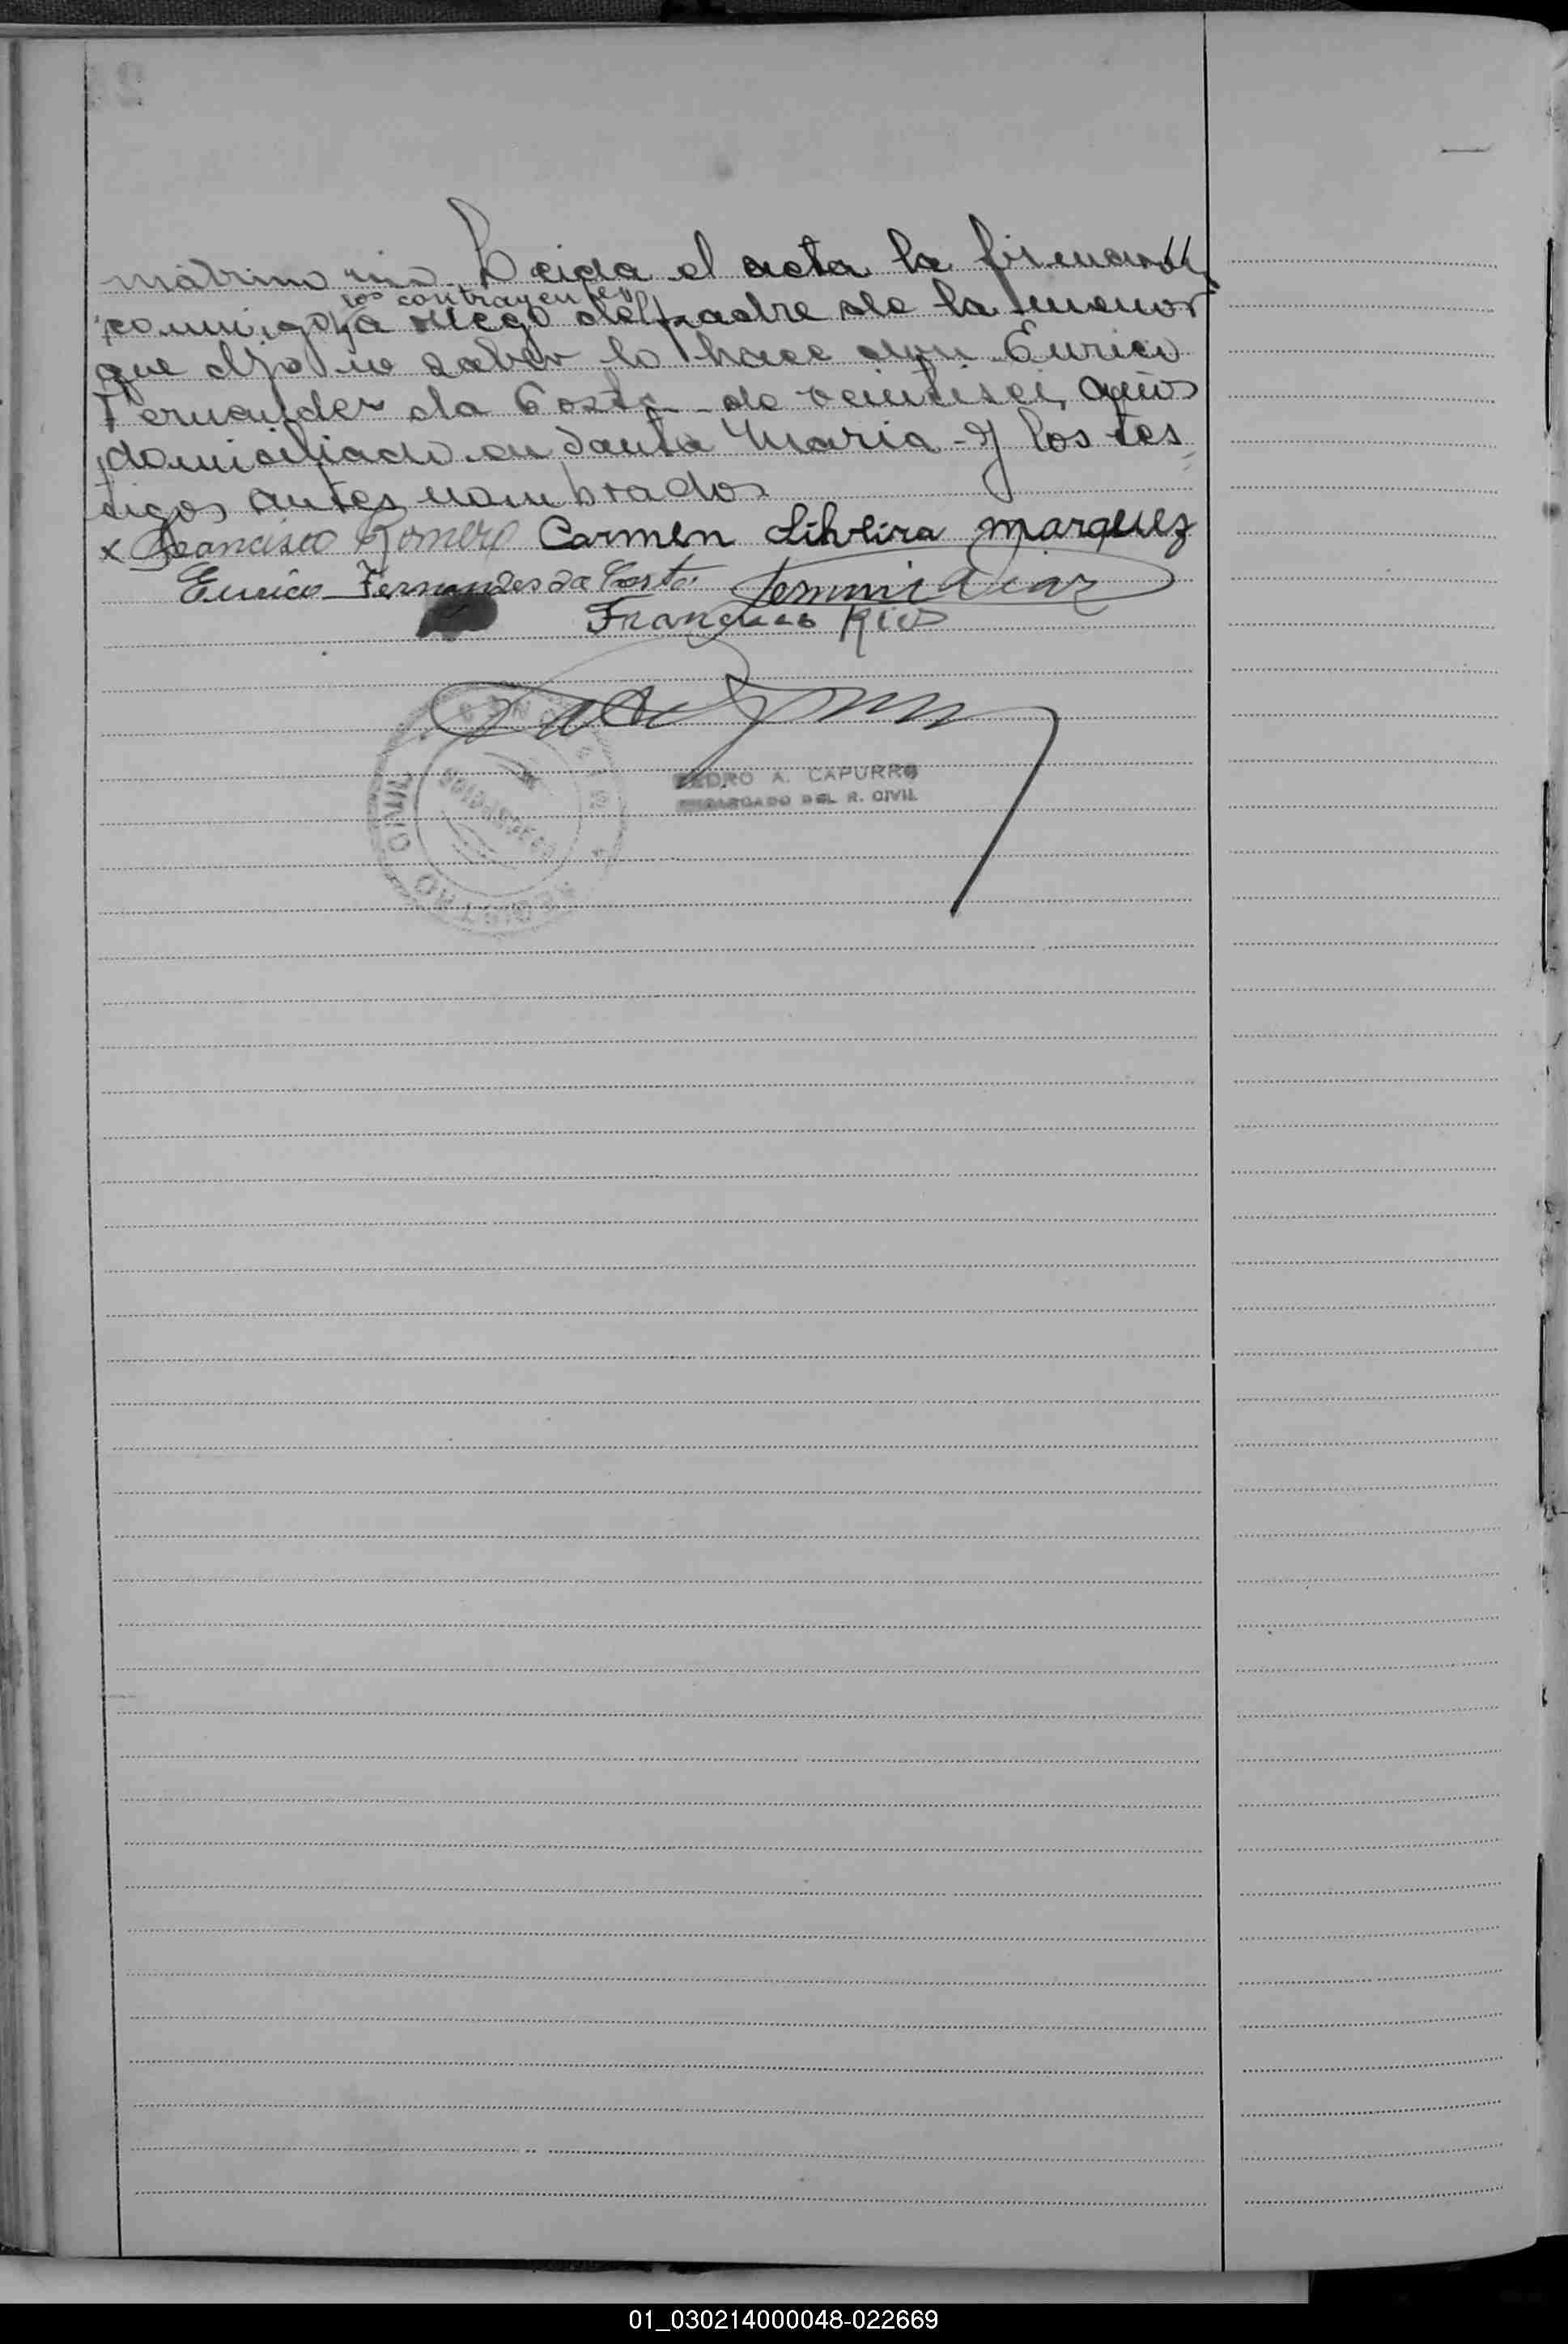 matrimonio. Leida el acta la firman
los contrayentes
conmigo, y a ruego del padre de la menor
que dijo no saber lo hace don Eurico
Fernandez da Costa de veintiseis años
domiciliado en Santa Maria - y los tes
tigos antes nombrados
x Francisco Romero Carmen Silveira Marquez
Eurico Fernandes da Costa Fermin Diaz
Francisco Rios
PEDRO A. CAPURRO
ENCARGADO DEL R. CIVIL
REGISTRO CIVIL
01_030214000048-022669